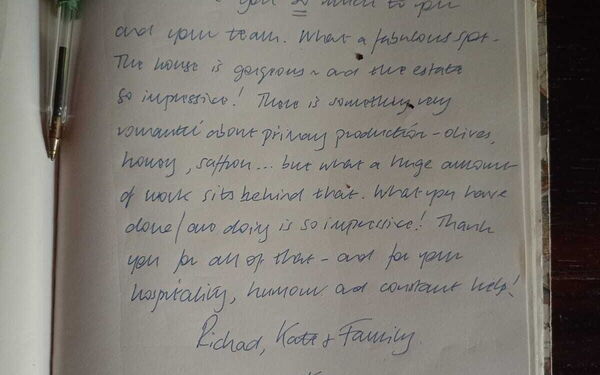 you so much to you
and your team. What a fabulous spot.
The house is gorgeous ~ and the estate
so impressive! There is something very
romantic about primary production - olives,
honey, saffron... but what a huge amount
of work sits behind that. What you have
done/are doing is so impressive! Thank
you for all of that - and for your
hospitality, humour and constant help!
Richard, Kate & Family.